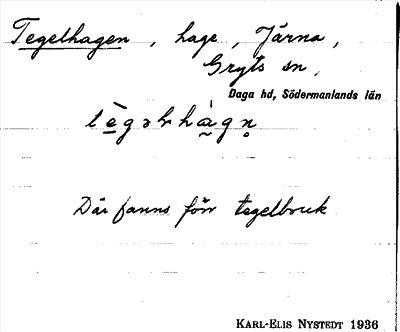 Tegelhagen, hage, Järna,
Gryts sn,
Daga hd, Södermanlands län
Där fanns förr tegelbruk
KARL-ELIS NYSTEDT 1936